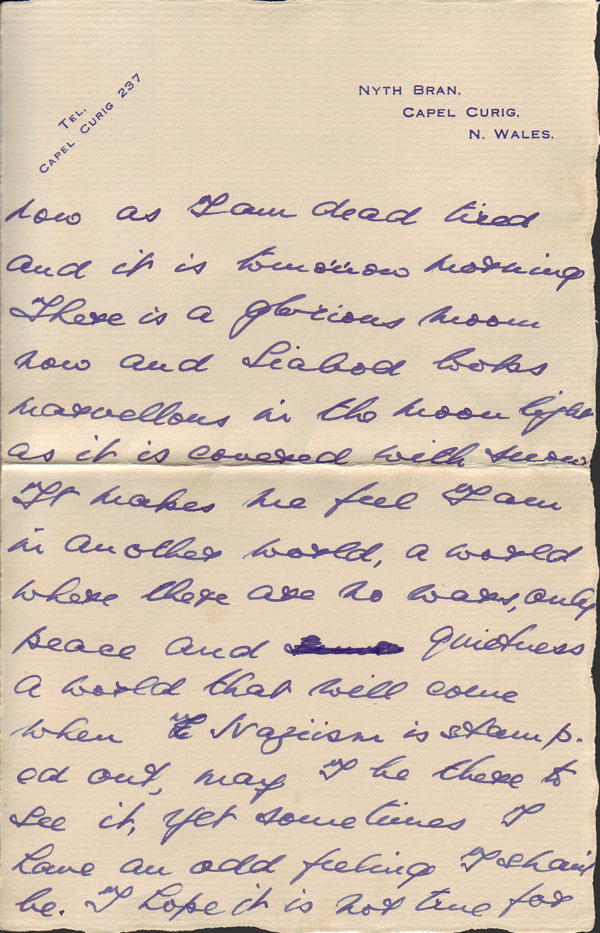 TEL.
CAPEL CURIG 237
NYTH BRAN,
CAPEL CURIG,
N. WALES.
now as I am dead tired
and it is tomorrow morning
There is a glorious moon
now and Siabod looks
marvellous in the moon light
as it is covered with snow
It makes me feel I am
in another world, a world
where there are no wars, only
peace and quietness
a world that will come
when Naziism is stamp-
ed out, may I be there to
see it, yet sometimes I
have an odd feeling I shant
be. I hope it is not true for